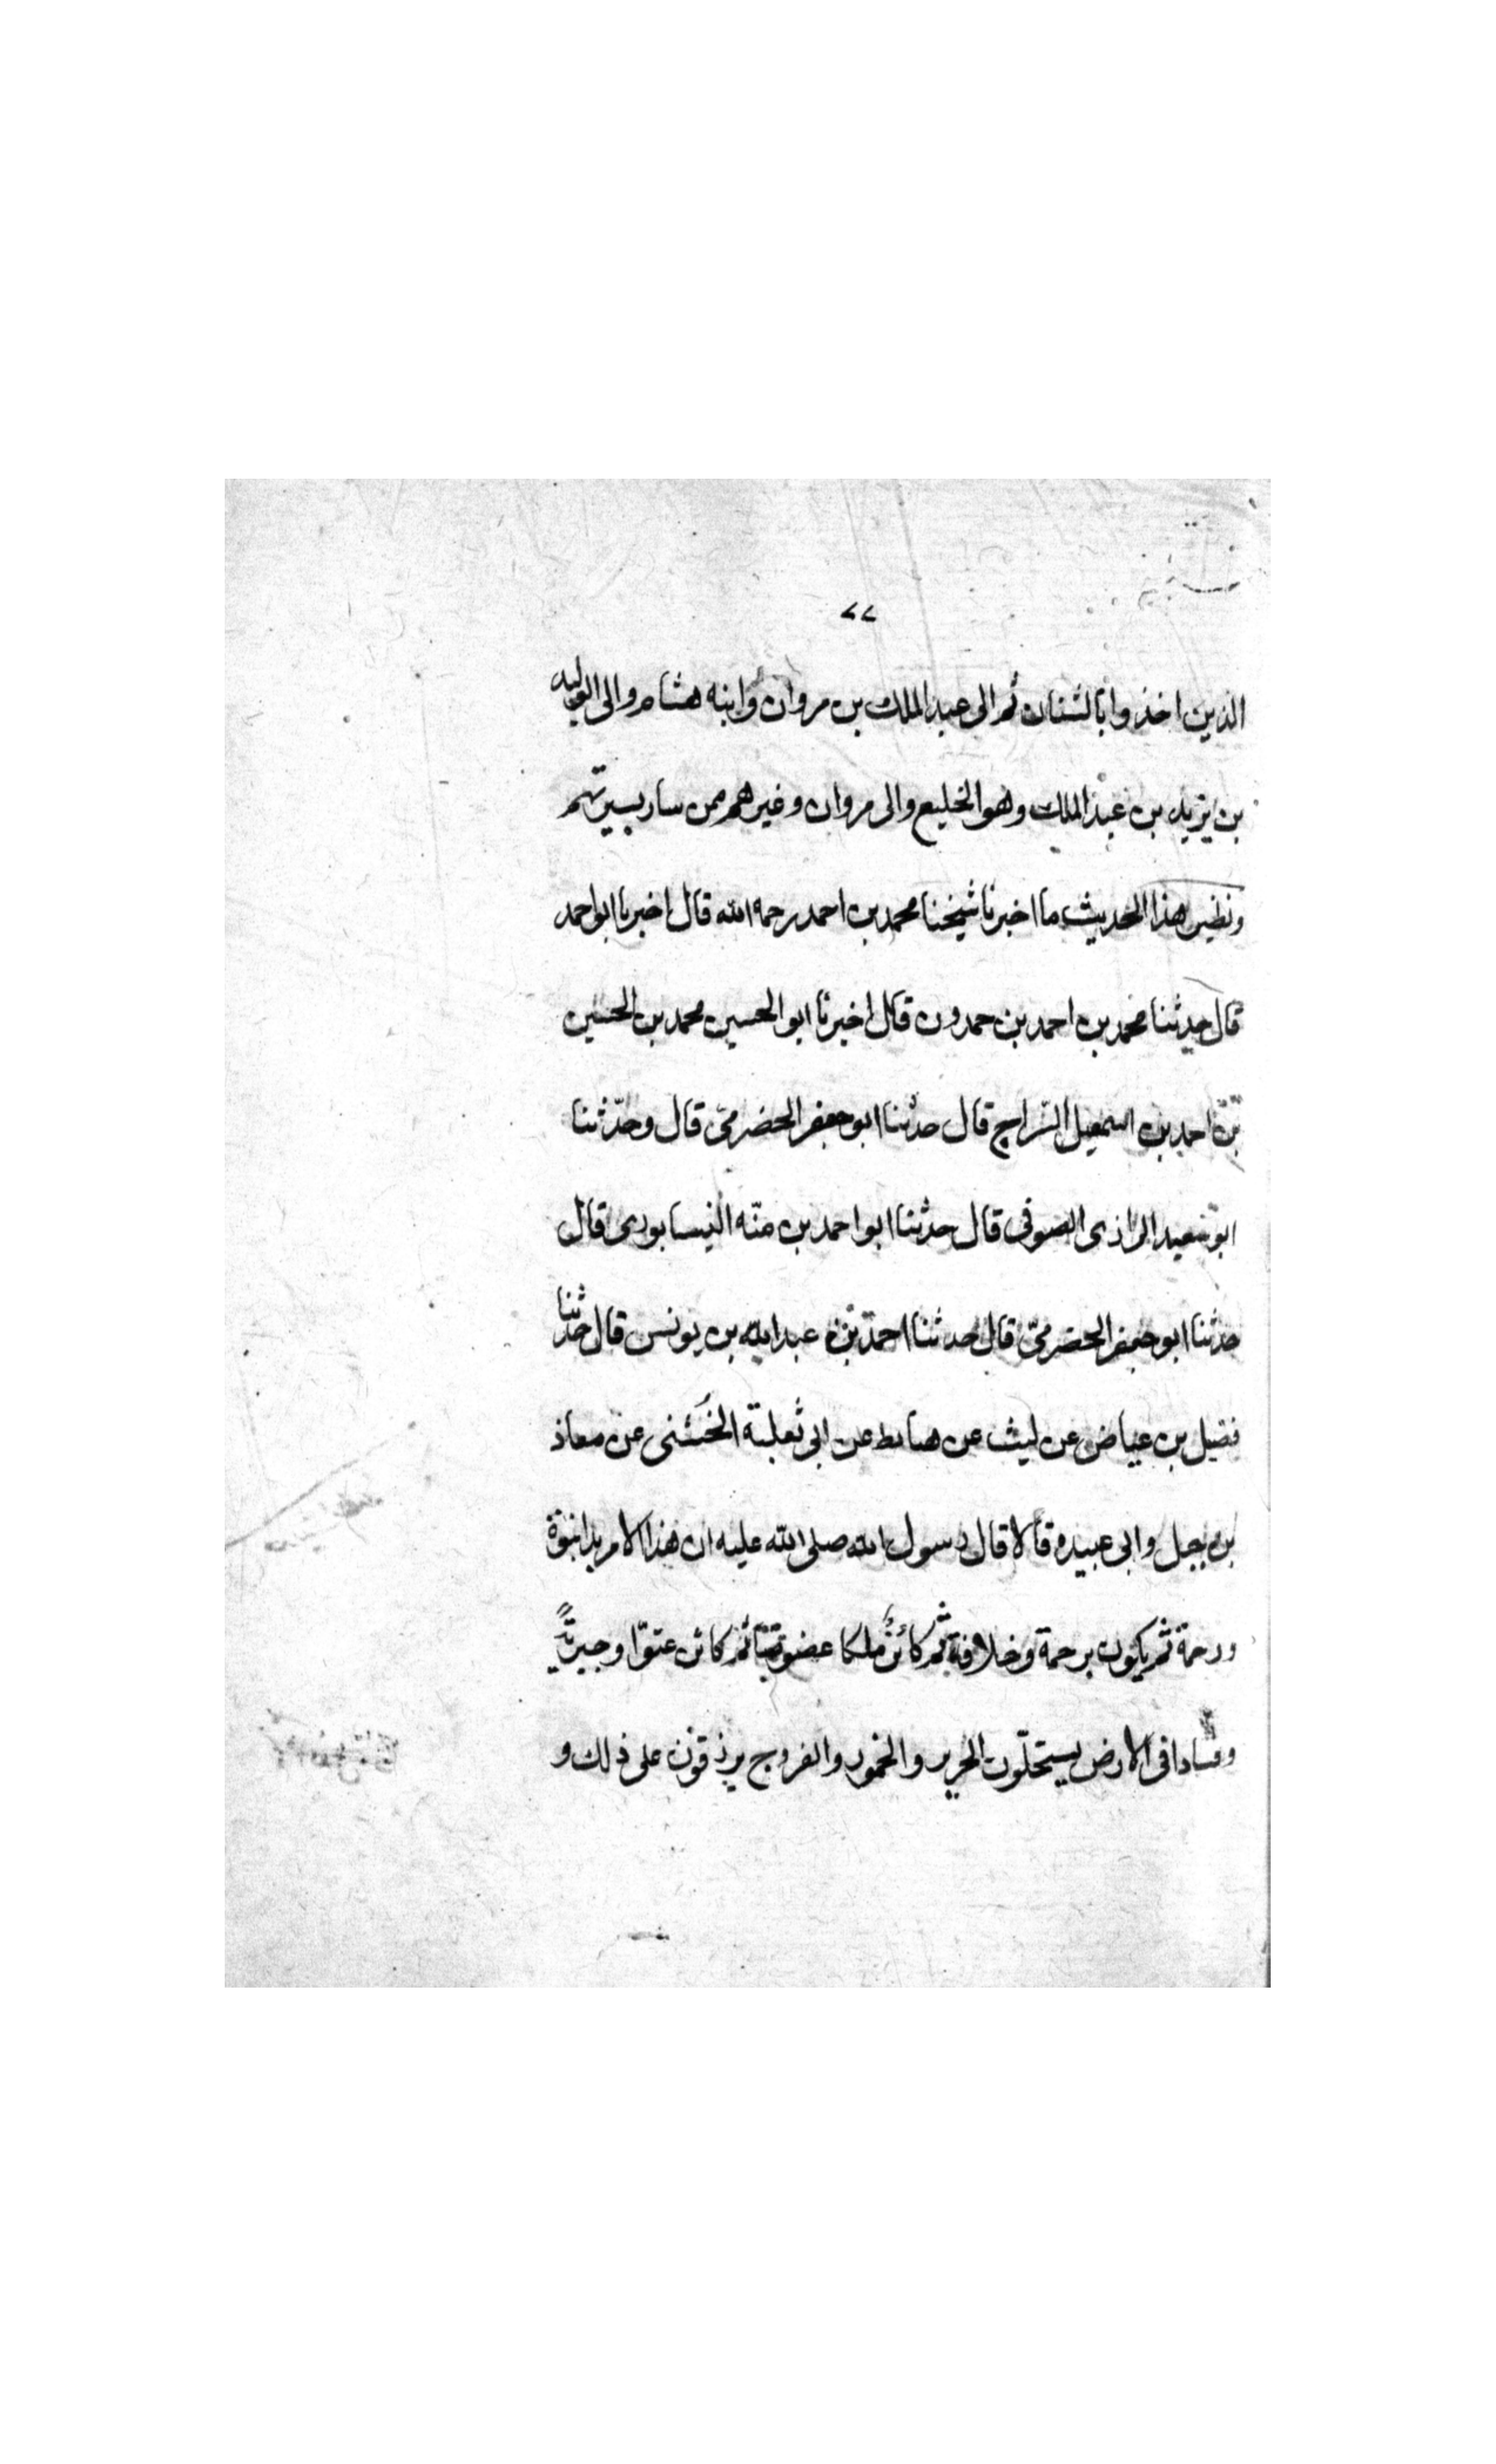 ٧٧
الذين اخذوا بالشنان ثم الى عبد الملك بن مروان وابنه هشام والى الوليد
بن يزيد بن عبد الملك وهو الخليع والى مروان وغيرهم ممن سار بسيرتهم
ونظير هذا الحديث ما اخبرنا شيخنا محمد بن احمد رحمه الله قال اخبرنا ابو احمد
قال حدثنا محمد بن احمد بن حمدون قال اخبرنا ابو الحسين محمد بن الحسين
بن احمد بن اسمعيل السّراج قال حدثنا ابو جعفر الحضرمىّ قال وحدّثنا
ابو سعيد الرازى الصوفى قال حدثنا ابو احمد بن منّه النيسابورى قال
حدثنا ابو جعفر الحضرمىّ قال حدثنا احمد بن عبد الله بن يونس قال حدثنا
فضيل بن عياض عن ليث عن صابط عن ابى ثعلبة الخُشنى عن معاذ
بن جبل وابى عبيده قالا قال رسول الله صلى الله عليه ان هذا الامر بدا نبوّة
ورحمة ثم يكون رحمة وخلافة ثم كائنٌ ملكا عضوضا ثم كائن عتوّا وجبريّةً
وفسادا فى الارض يستحلّون الحرير والخمور والفروج يرزقون على ذلك و